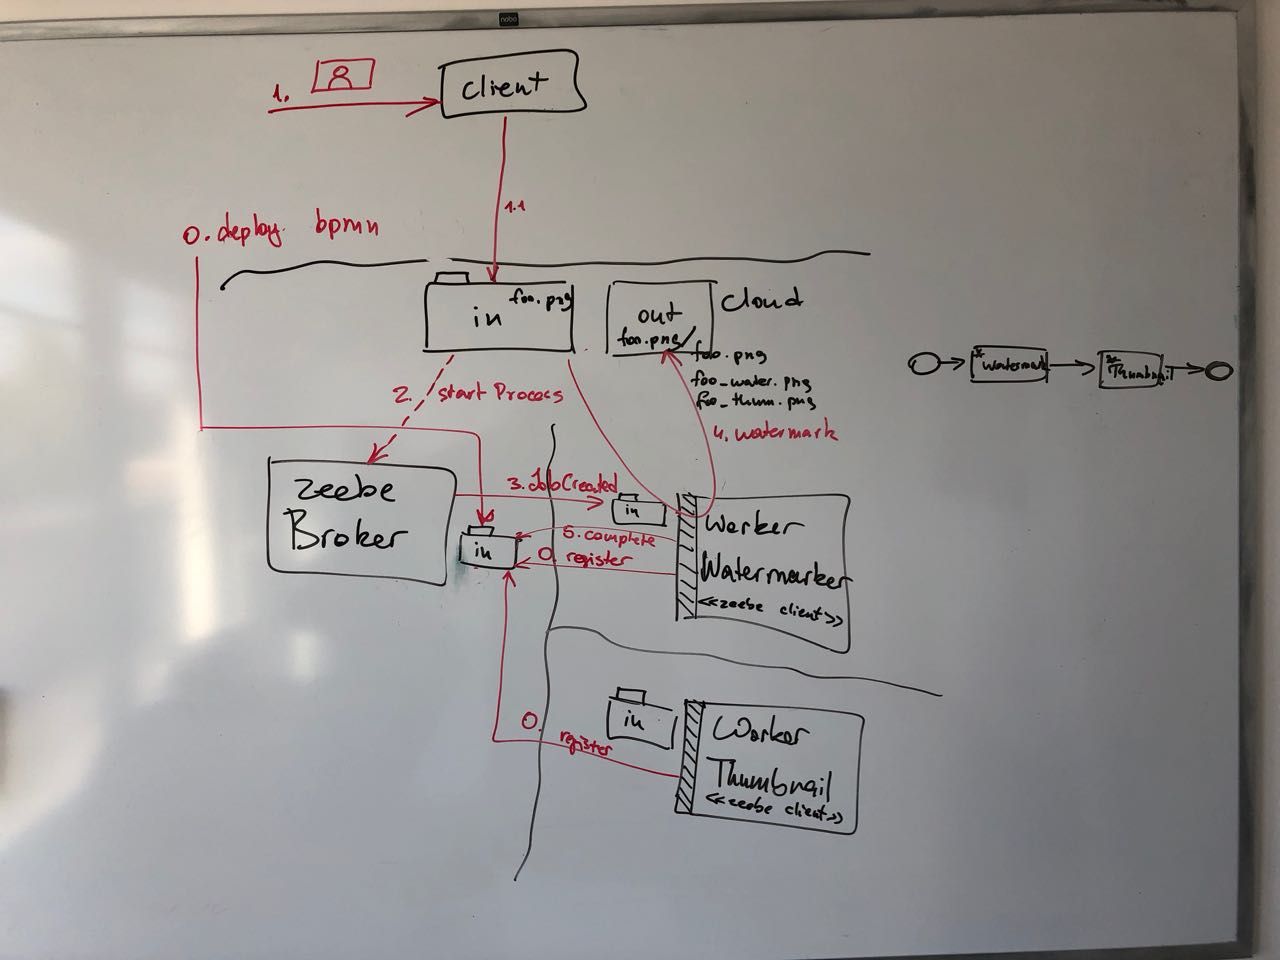 nobo
1.
client
1.1
0. deploy bpmn
in
foo.png
out
foo.png
cloud
foo.png
foo_water.png
foo_thum.png
* Watermark
* Thumbnail
2. start Process
4. watermark
zeebe
Broker
3. JobCreated
in
in
5. complete
0. register
Worker
Watermarker
<<zeebe client>>
0.
register
in
Worker
Thumbnail
<<zeebe client>>